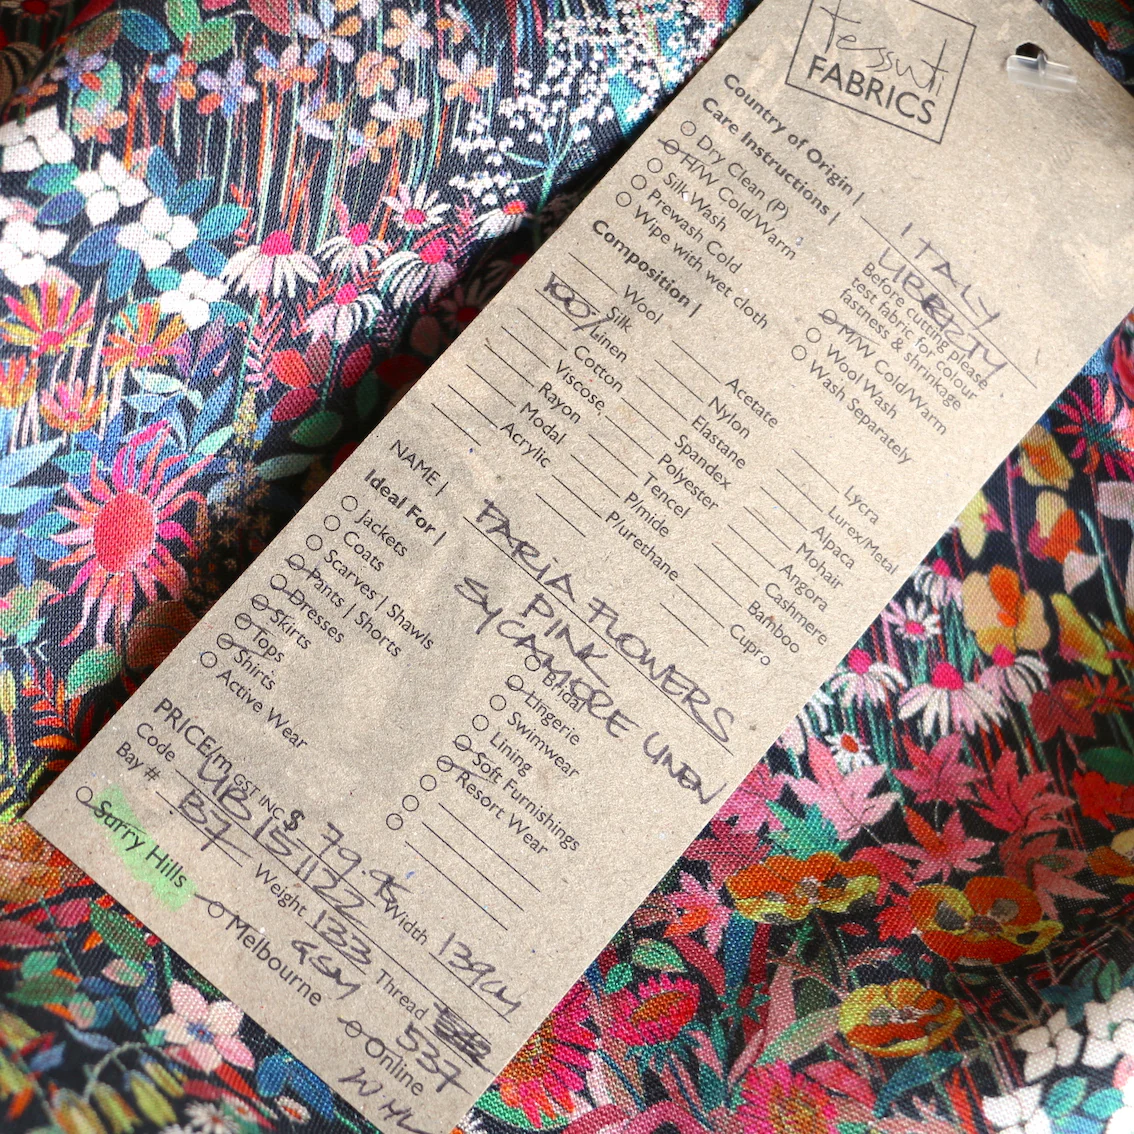 tessuti
FABRICS
Country of Origin | ITALY
LIBERTY
Care Instructions |
Before cutting please
test fabric for colour
fastness & shrinkage
Dry Clean (P)
H/W Cold/Warm
Silk Wash
Prewash Cold
Wipe with wet cloth
M/W Cold/Warm
Wool Wash
Wash Separately
Composition |
Wool
Silk
100% Linen
Cotton
Viscose
Rayon
Modal
Acrylic
Acetate
Nylon
Elastane
Spandex
Polyester
Tencel
P/mide
P/urethane
Lycra
Lurex/Metal
Alpaca
Mohair
Angora
Cashmere
Bamboo
Cupro
NAME | FARIA FLOWERS
PINK
SYCAMORE LINEN
Ideal For |
Jackets
Coats
Scarves | Shawls
Pants | Shorts
Dresses
Skirts
Tops
Shirts
Active Wear
Bridal
Lingerie
Swimwear
Lining
Soft Furnishings
Resort Wear
PRICE/m GST INC $ 79.95
Code LIB151122 Width 139cm
Bay # B7 Weight 133 GSM Thread 537
Surry Hills Melbourne Online